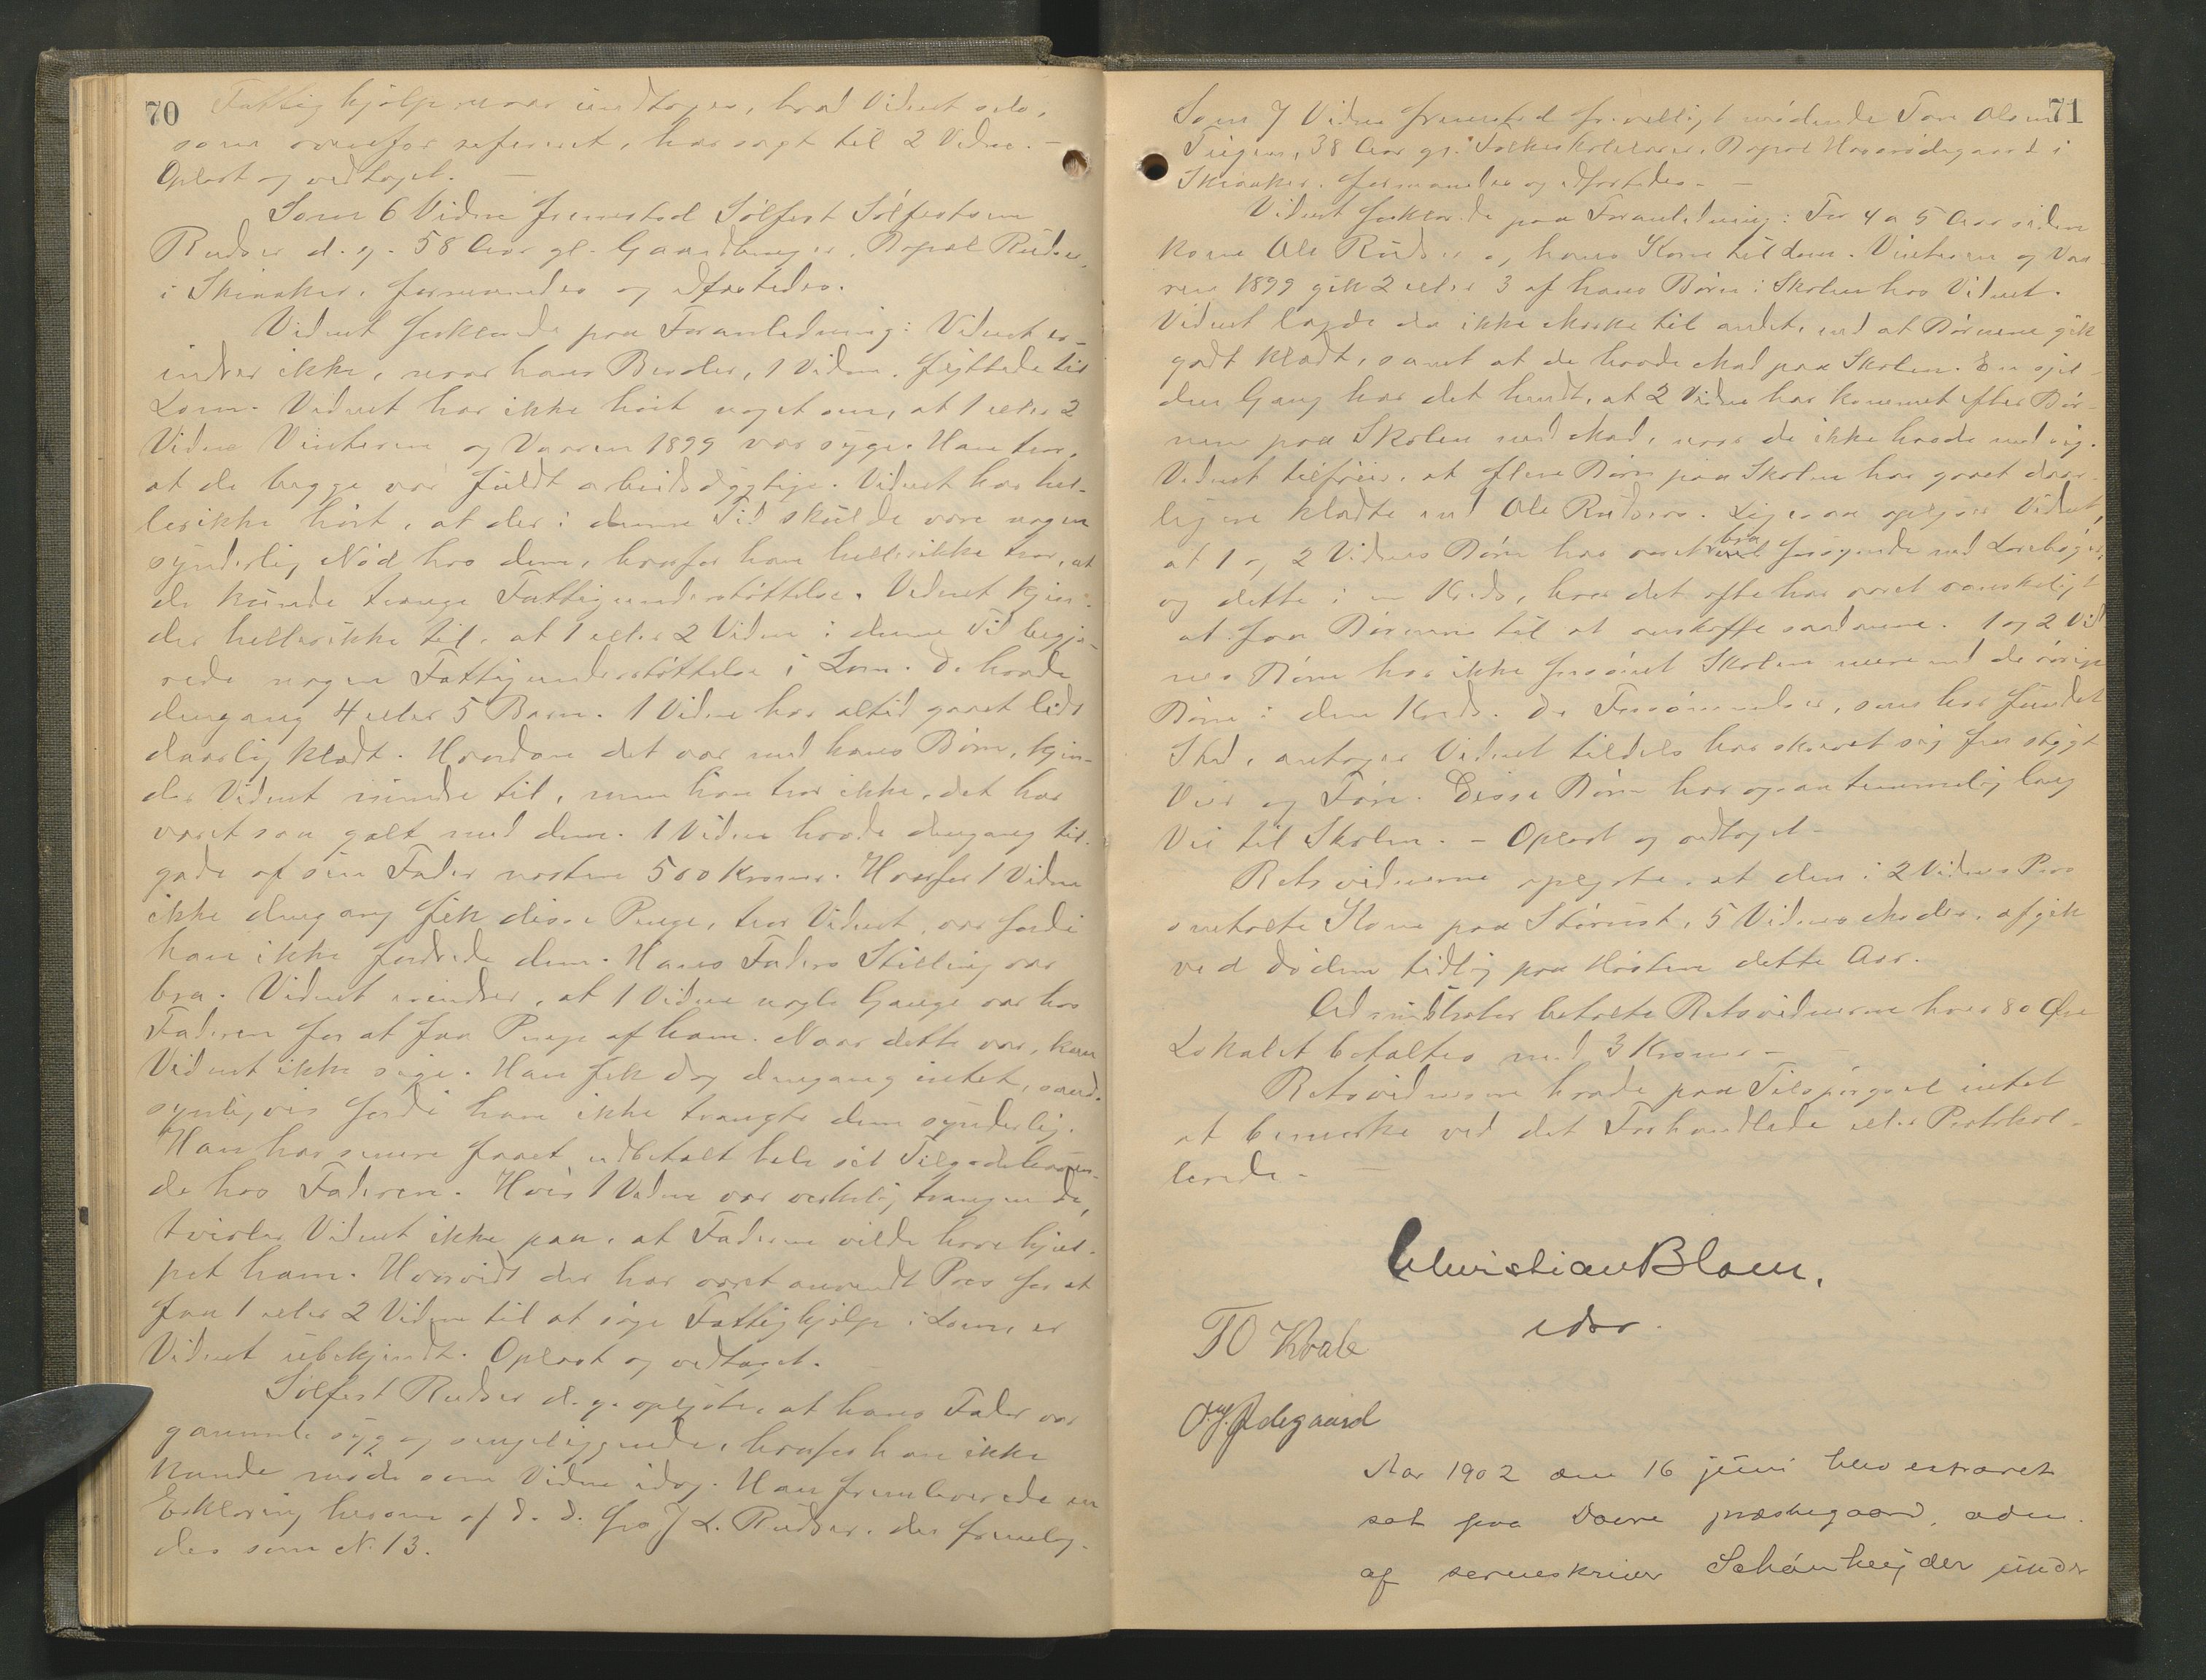 70
Fattighjælp var indtaget, hvad Vidnet selv,
som ovenfor referert, har sagt til 2 Vidne. –
Oplæst og vedtaget. –
Som 6 Vidne fremstod Sølfest Sølfestsen
Rudser d. y. 58 Aar gl. Gaardbruger, Bopæl Rudser
i Skiaaker, formanedes og edfæstedes.
Vidnet forklarede paa Foranledning: Vidnet er-
indrer ikke, naar hans Broder, 1 Vidne, flyttede til
Lom. Vidnet har ikke hørt noget om, at 1 eller 2
Vidne Vinteren og Vaaren 1899 var syge. Han tror,
at de begge var fuldt arbeidsdygtige. Vidnet har hel-
ler ikke hørt, at der i denne Tid skulde være nogen
synderlig Nød hos dem, hvorfor han heller ikke tror, at
de kunde trænge Fattigunderstøttelse. Vidnet kjen-
der heller ikke til, at 1 eller 2 Vidne i denne Tid begjæ-
rede nogen Fattigunderstøttelse i Lom. De havde
dengang 4 eller 5 Barn. 1 Vidne har altid gaaet lidt
daarlig klædt. Hvordan det var med hans Børn, kjen-
der Vidnet mindre til, men han tror ikke, det har
været saa galt med dem. 1 Vidne havde dengang til-
gode af sin Fader næsten 500 Kroner. Hvorfor 1 Vidne
ikke dengang fik disse Penge, tror Vidnet, var fordi
han ikke fordrede dem. Hans Faders Stilling var
bra. Vidnet erindrer, at 1 Vidne nogle Gange var hos
Faderen for at faa Penge af ham. Naar dette var, kan
Vidnet ikke sige. Han fik dog dengang intet, sand-
synligvis fordi han ikke trængte dem synderlig.
Han har senere faaet udbetalt hele sit Tilgodehaven-
de hos Faderen. Hvis 1 Vidne var virkelig trængende,
tvivler Vidnet ikke paa, at Faderen vilde have hjæl-
pet ham. Hvorvidt der har været anvendt Pres for at
faa 1 eller 2 Vidne til at søge Fattighjælp i Lom, er
Vidnet ubekjendt. Oplæst og vedtaget.
Sølfest Rudser d. y. oplyste, at hans Fader var
gammel, syg og sengeliggende, hvorfor han ikke
kunde møde som Vidne idag. Han fremleverede en
Erklæring herom af d. d. fra J L. Rudser, der fremlag-
des som N. 13.
71
Som 7 Vidne fremstod frivilligt mødende Tor Olsen
38 Aar gl. Folkeskolelærer, Bopæl i
Skiaaker, formanedes og edfæstedes. –
Vidnet forklarede paa Foranledning: For 4 a 5 Aar siden
kom Ole Rudser og hans Kone til dem. Vinteren og Vaa-
ren 1899 gik 2 eller 3 af hans Børn i Skolen hos Vidnet.
Vidnet lagde da ikke Mærke til andet, end at Børnene gik
godt klædt, samt at de havde Mad paa Skolen. En sjel-
den Gang har det hendt, at 2 Vidne har kommet efter Bør-
nene paa Skolen med Mad, naar de ikke havde med sig.
Vidnet tilføier, at flere Børn paa Skolen har gaaet daar-
ligere klædte end Ole Rudsers. Ligesaa oplyser Vidnet,
at 1 og 2 Vidnes Børn har været bra forsynede med Lærebøger,
og dette i en Kreds, hvor det ofte har været vanskeligt
at faa Børnene til at anskaffe saadanne. 1 og 2 Vid-
nes Børn har ikke forsømt Skolen mere end de øvrige
Børn i den Kreds. De Forsømmelser, som har fundet
Sted, antager Vidnet tildels har skrevet sig fra stygt
Veir og Føre. Disse Børn har ogsaa temmelig lang
Vei til Skolen. – Oplæst og vedtaget –
Retsvidnerne oplyste, at den i 2 Vidnes Prov
omtalte Kone paa Størust, 5 Vidnes Moder, afgik
ved Døden tidlig paa Høsten dette Aar.
Administrator betalte Retsvidnerne hver 80 Øre
Lokalet betaltes med 3 Kroner –
Retsvidnerne havde paa Tilspørgsel intet
at bemærke ved det Forhandlede eller Protokol-
lerede –
Christian Blom,
edsv.
T O Kvale
O. Ødegaard
Aar 1902 den 16 juni blev extraret
sat paa Dovre præstegaard, adm.
af sorenskriver Schönheyder under